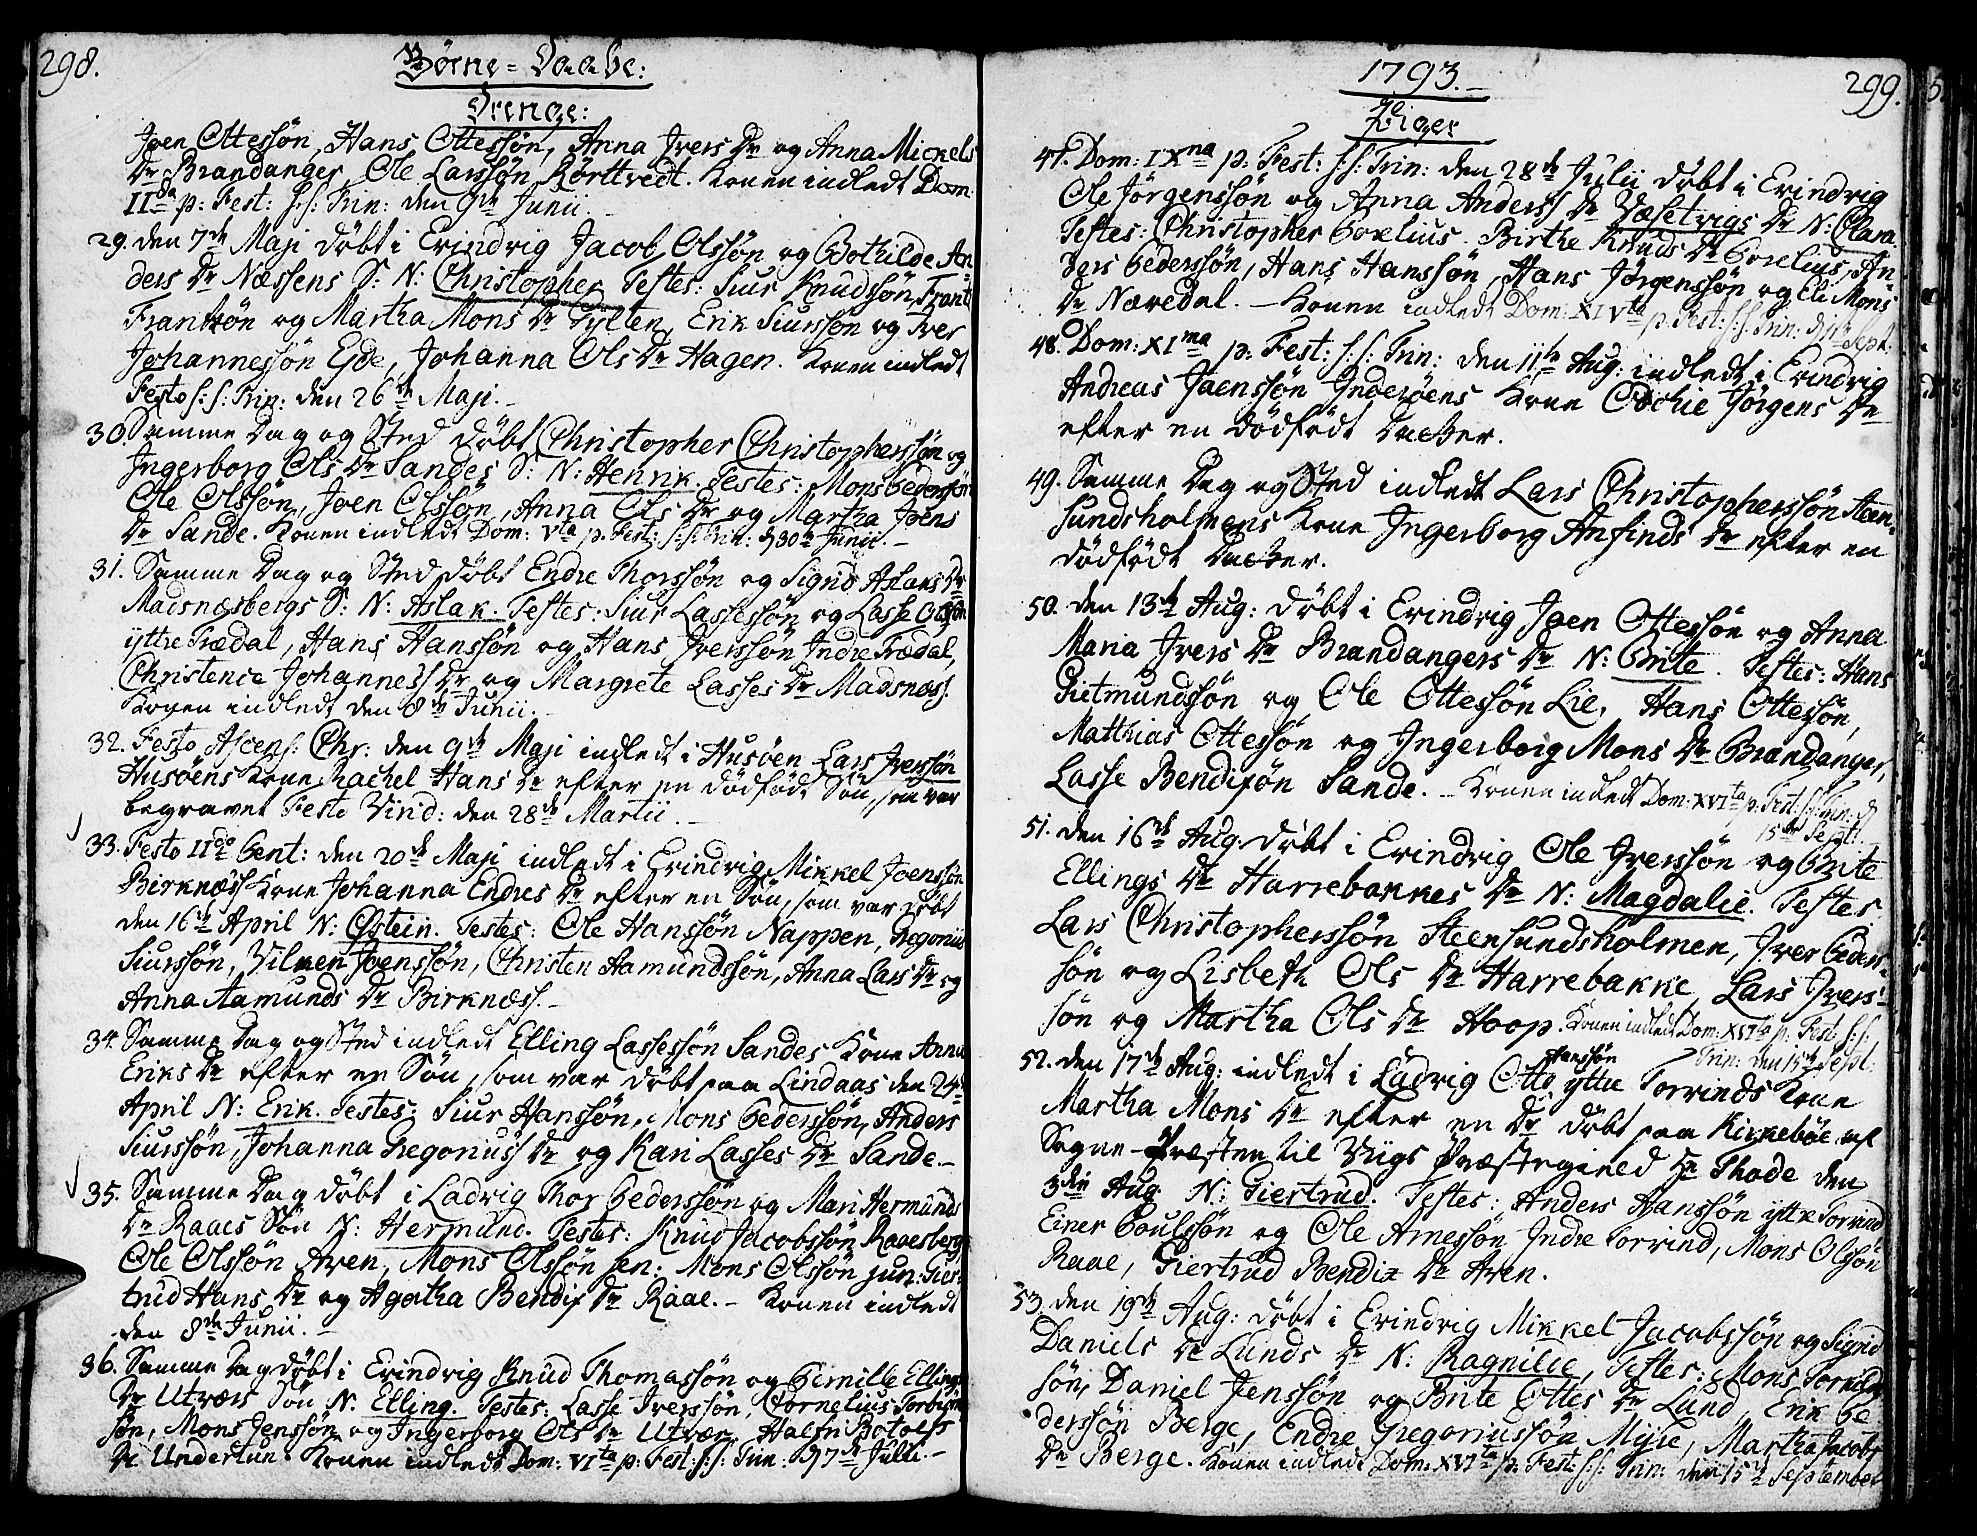 298.
Børne-Daabe:
Drenge:
Joen Ottessøn, Hans Ottessøn, Anna Ivers Dr og Anna Mickels
Dr Brandanger, Ole Larssøn Körttvedt. Konen indledt Dom:
IIda p: Fest: s:s: Trin: den 9de Junii.
29. den 7de Maji døbt i Evindvig Jacob Olssøn og Bothilde An-
ders Dr Næssens S: N: Christopher Testes: Siur Knudssøn, Frants
Frantssøn og Martha Mons Dr Tylten, Erik Siurssøn og Iver
Johannessøn Ejde, Johanna Ols Dr Hagen. Konen indledt
Festo s:s: Trin: den 26de Maji.
30. Samme Dag og Sted døbt Christopher Christopherssøn og
Ingerborg Ols Dr Sandes S: N: Henrik. Testes: Mons Pederssøn
Ole Olssøn, Joen Olssøn, Anna Ols Dr og Martha Joens
Dr Sande. Konen indledt Dom: Vta p: Fest: s:s: Trin: d 30te Junii.
31. Samme Dag og Sted døbt Endre Thorssøn og Sigrid Aslaks Dr
Madsnæsbergs S: N: Aslak. Testes: Siur Lassessøn og Lasse Olssøn
ÿttre Trædal, Hans Hanssøn og Hans Iverssøn Indre Trædal,
Christence Johanness Dr og Margrete Lasses Dr Madsnæss.
Konen indledt den 8de Junii.
32. Festo Ascens: Chr: den 9de Maji indledt i Husøen Lars Iverssøn
Husøens Kone Rachel Hans Dr efter en dødfødt Søn, som var
begravet Festo Virid: den 28de Martii.
33. Festo IIdo Pent: den 20de Maji indledt i Evindvig Mikkel Joenssøn
Birknæss Kone Johanna Endres Dr efter en Søn, som var døbt
den 16de April N: Østein. Testes: Ole Hanssøn Nappen, Gregorius
Siurssøn, Vilken Joenssøn, Christen Aamundssøn, Anna Lars Dr og
Anna Aamunds Dr Birknæss.
34. Samme Dag og Sted indledt Elling Lassessøn Sandes Kone Anna
Eriks Dr efter en Søn, som var døbt paa Lindaas den 24de
April N: Erik. Testes: Siur Hanssøn, Mons Pederssøn, Anders
Siurssøn, Johanna Gregorius Dr og Kari Lasses Dr Sande.
35. Samme Dag døbt i Ladvig Thor Pederssøn og Mari Hermunds
Dr Raaes Søn N: Hermund. Testes: Knud Jacobssøn Raaesberg,
Ole Olssøn Aven, Mons Olssøn sen: Mons Olssøn jun: Gier-
trud Hans Dr og Agatha Bendix Dr Raae. Konen indledt
den 8de Junii.
36. Samme Dag døbt i Evindvig Knud Thomassøn og Pernille Ellings
Dr Utværs Søn N: Elling. Testes: Lasse Iverssøn, Cornelius Torbiörn-
søn, Mons Jenssøn og Ingerborg Ols Dr Utvær. Halfri Botolfs
Dr Undertun. Konen indledt Dom: VIta p: Fest: s:s: Trin: d 7de Julii.
1793.
299.
Piger
47. Dom: IXna p: Fest: s:s: Trin: den 28de Julii døbt i Evindvig
Ole Jörgenssøn og Anna Anderss Dr Væsetvigs Dr N: Clara.
Testes: Christopher Boxelius. Birthe Knuds Dr Boxelius, An-
ders Pederssøn, Hans Hanssøn, Hans Jörgenssøn og Eli Mons
Dr Næredal. Konen indledt Dom: XIVta p: Fest: s:s: Trin: d 1ste Sept.
48. Dom: XIma p: Fest: s:s: Trin: den 11te Aug: indledt i Evindvig
Andreas Joenssøn Inderøens Kone Cechie Jörgens Dr
efter en dødfødt Datter.
49. Samme Dag og Sted indledt Lars Christopherssøn Steen-
sundsholmens Kone Ingerborg Anfinds Dr efter en
dødfødt Datter.
50. den 13de Aug: døbt i Evindvig Joen Ottessøn og Anna
Maria Ivers Dr Brandangers Dr N: Brite. Testes: Hans
Gietmundssøn og Ole Ottessøn Lie, Hans Ottessøn,
Matthias Ottessøn og Ingerborg Mons Dr Brandanger,
Lasse Bendixøn Sande. Konen indledt Dom: XVIta p: Fest: s:s: Trin: d
15de Sept:
51. den 16de Aug: døbt i Evindvig Ole Iverssøn og Brite
Ellings Dr Harrebakkes Dr N: Magdalie. Testes
Lars Christopherssøn Steensundsholmen, Iver Peders-
søn og Lisbeth Ols Dr Harrebakke, Lars Ivers-
søn og Martha Ols Dr Hoop. Konen indledt Dom: XVIta p: Fest: s:s:
Trin: den 15de Sept:
52. den 17de Aug: indledt i Ladvig Otto Hanssøn ÿttre Torvinds Kone
Martha Mons Dr efter en Dr døbt paa Kirkebøe af
Sogne-Præsten til Viigs Præstegield Hr Thode den
3die Aug: N: Giertrud. Testes: Anders Hanssøn ÿttre Torvind
Einer Poulssøn og Ole Arnessøn Indre Torvind, Mons Olssøn
Raae, Giertrud Bendix Dr Aven.
53. den 19de Aug: døbt i Evindvig Mikkel Jacobssøn og Sigrid
Daniels Dr Lunds Dr N: Ragnilie, Testes: Mons Torkild-
søn, Daniel Jenssøn og Brite Ottes Dr Lund, Erik Pe-
derssøn Berge, Endre Gregoriussøn Mÿre, Martha Jacobs
Dr Berge. Konen indledt Dom: XVIta p: Fest: s:s: Trin: den 15de September